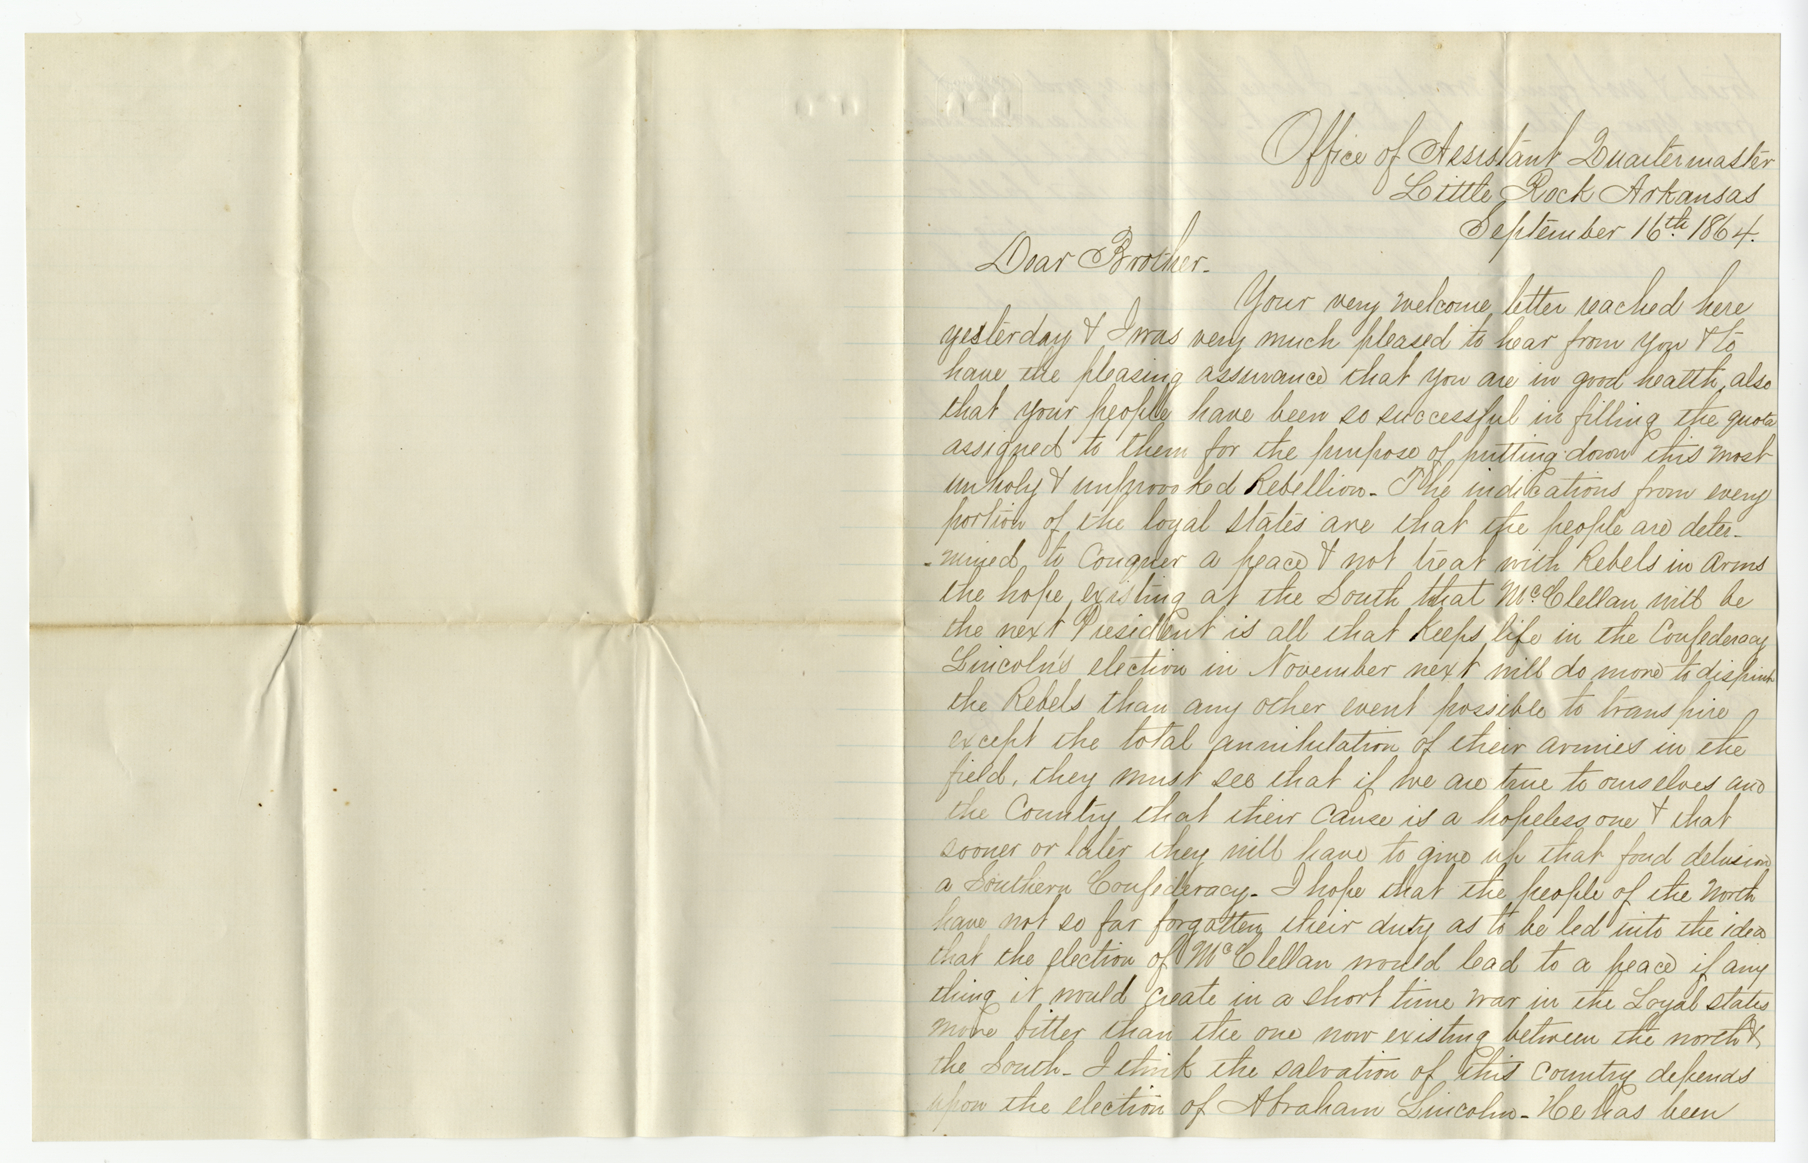 Office of Assistant Quartermaster
Little Rock Arkansas
September 16th 1864.
Dear Brother.
Your very welcome letter reached here
yesterday & I was very much pleased to hear from you & to
have the pleasing assurance that you are in good health, also
that your people have been so successful in filling the quota
assigned to them for the purpose of putting down this most
unholy & unprovoked Rebellion - The indications from every
portion of the loyal states are that the people are deter-
-mined to Conquer a peace & not treat with Rebels in arms
the hope existing at the South that McClellan will be
the next President is all that keeps life in the Confederacy
Lincoln's election in November next will do more to dispirit
the Rebels than any other event possible to transpire
except the total annihilation of their armies in the
field, they must see that if we are true to ourselves and
the Country that their cause is a hopeless one & that
sooner or later they will have to give up that fond delusion
a Southern Confederacy - I hope that the people of the North
have not so far forgotten their duty as to be led into the idea
that the election of McClellan would lead to a peace if any
thing it would create in a short time war in the Loyal states
more bitter than the one now existing between the north &
the South - I think the salvation of this Country depends
upon the election of Abraham Lincoln - He has been